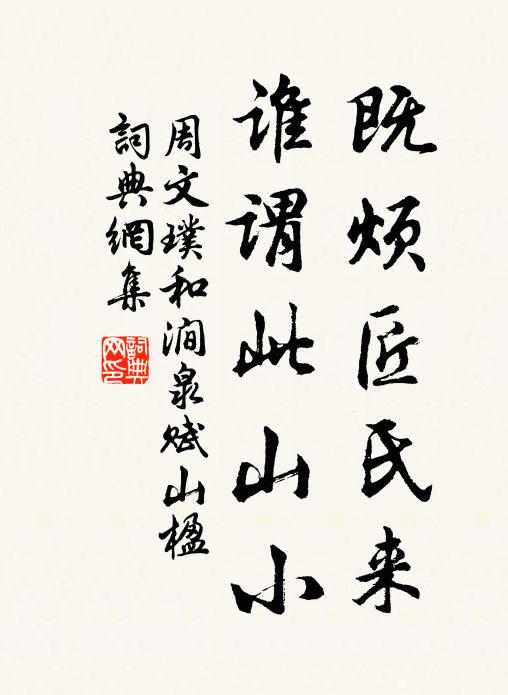 既烦匠氏来
谁谓此山小
周文璞和涧泉赋山楹
詞典網集
詞典网印